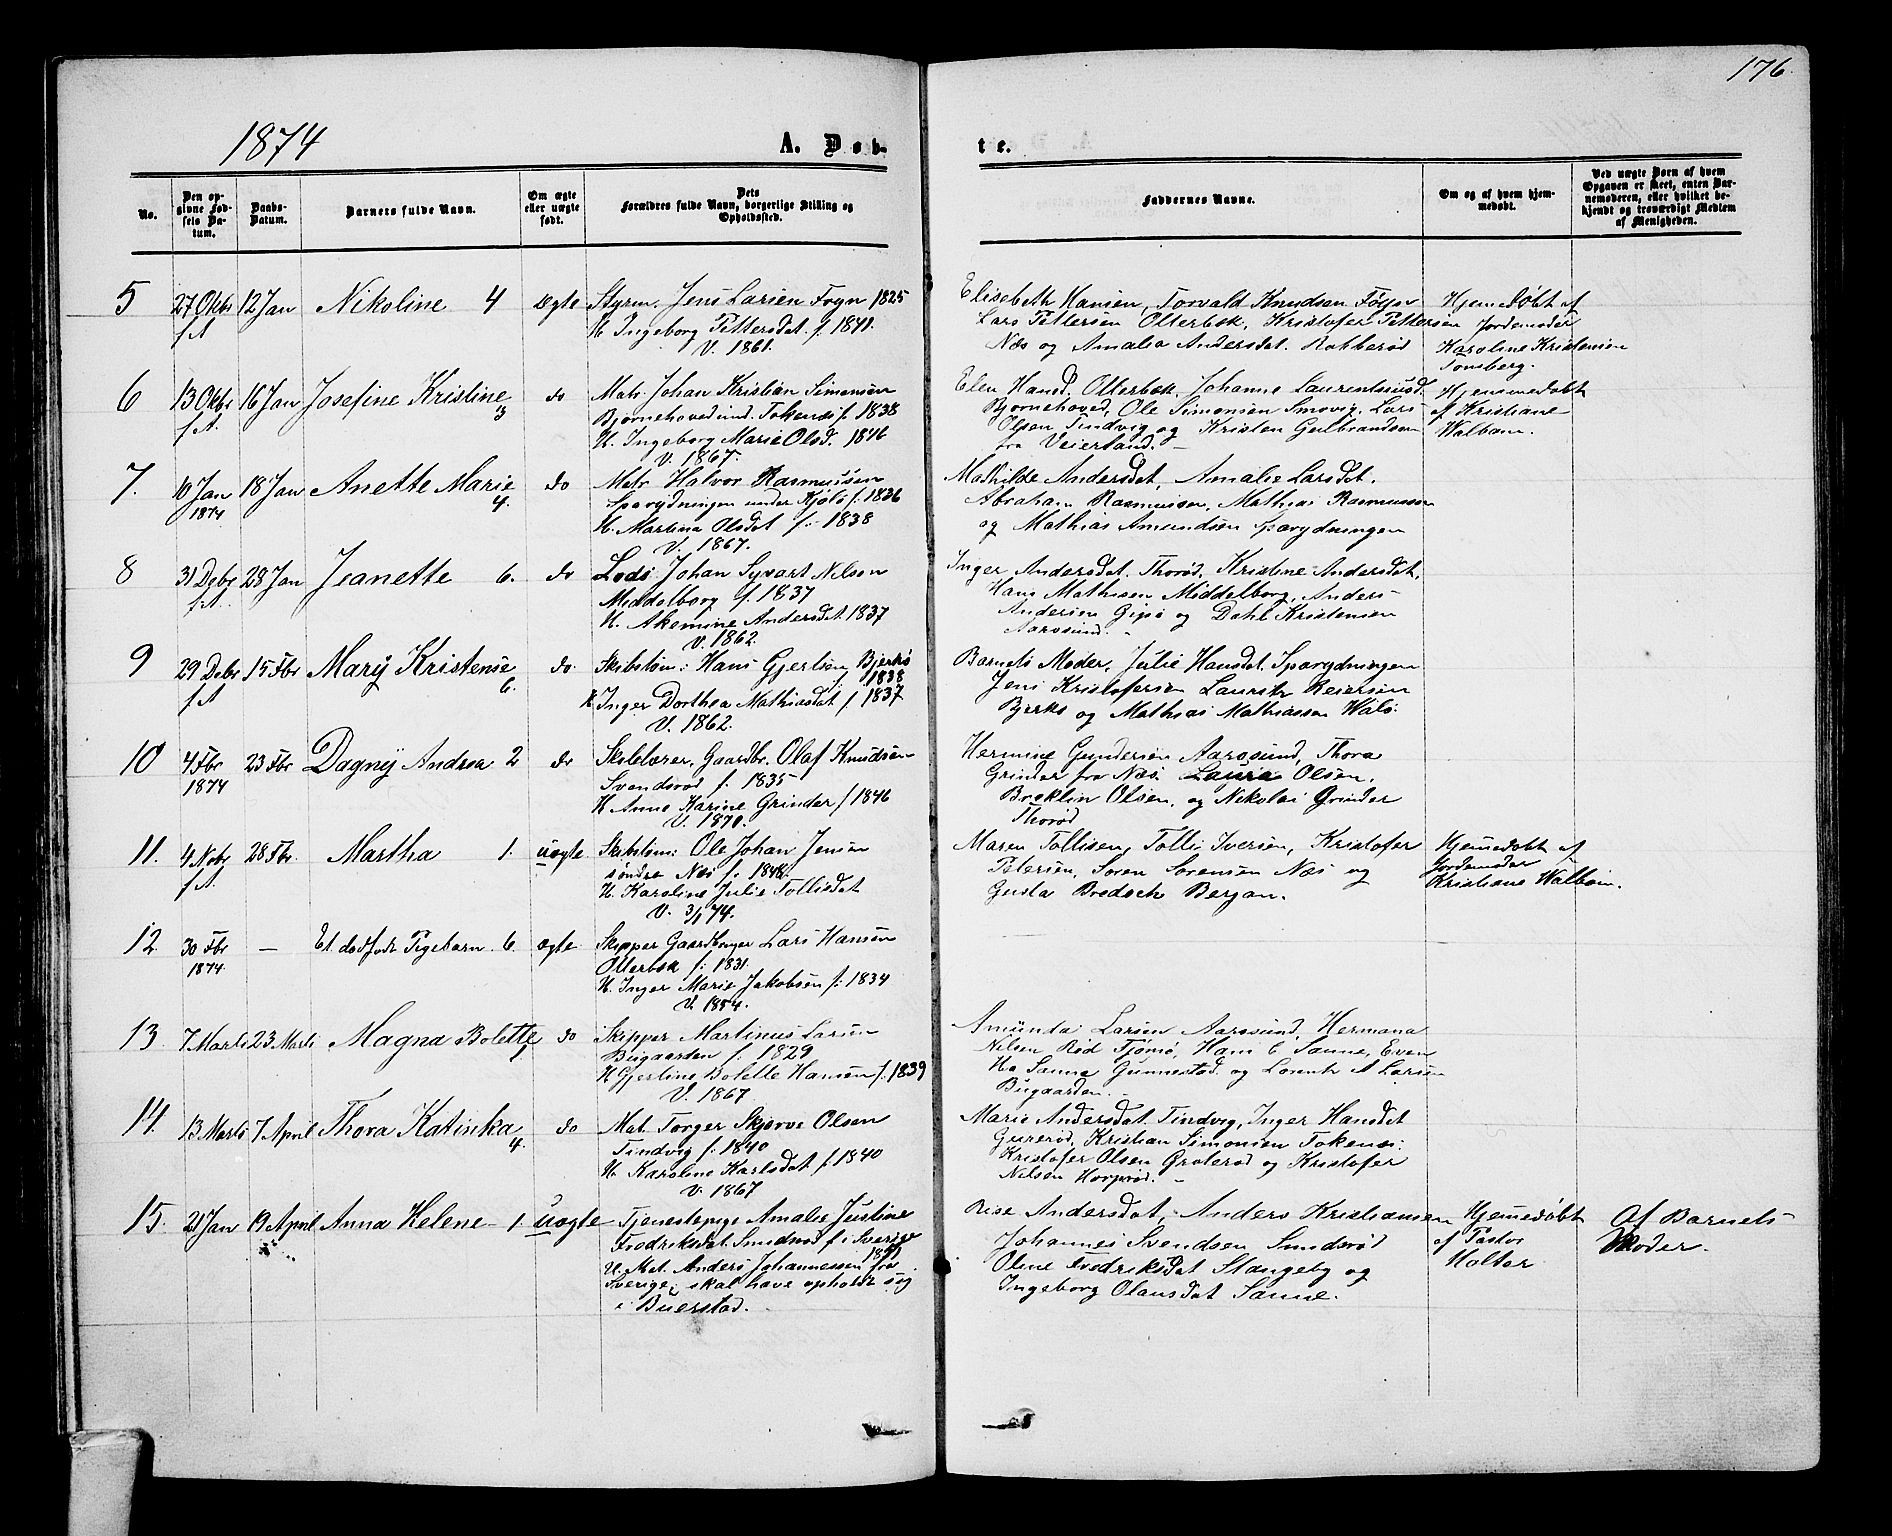 176.
1874
A. Døb-
te.
No.
Den op-
givne Fød-
sels Da-
tum.
Daabs-
Datum.
Barnets fulde Navn.
Om ægte
eller uægte
født.
Dets
Forældres fulde Navn, borgerlige Stilling og
Opholdssted.
Faddernes Navne.
Om og af hvem hjem-
medøbt.
Ved uægte Børn af hvem
Opgaven er skeet, enten Bar-
nemoderen, eller hvilket be-
kjendt og troværdigt Medlem
af Menigheden.
5 27 Oktbr 12 Jan Nikoline 4 Ægte Styrm. Jens Larsen Føyn 1825
f A H. Ingeborg Pettersdat. f. 1841.
V. 1861.
Elisebeth Hansen, Torvald Knudsen Føyn
Lars Pettersen Otterbæk, Kristofer Pettersen
Næs og Amalia Andersdat. Rakkerød
Hjemedøbt af
Jordemoder
Karoline Kristensen
Tønsberg.
6 13 Oktbr 16 Jan Josefine Kristine 3 do Matr. Johan Kristian Simonsen
f A. Bjørnehoved und. Tokenæs f. 1838
H. Ingeborg Marie Olsd. 1846
V. 1867.
Elen Hansd. Otterbæk. Johanne Laurentsusd.
Bjørnehoved, Ole Simonsen Smovig, Lars
Olsen Tindvig og Kristen Gulbrandsen
fra Veierland. -
Hjemmedøbt
af Kristiane
Walbom.
7. 10 Jan 18 Jan Anette Marie 4. do Matr Halvor Rasmussen
1874 Sparydningen under Kjølø f. 1836
H. Martina Olsdat f. 1838
V. 1867.
Mathilde Andersdat, Amalie Larsdat.
Abraham Rasmussen, Mathias Rasmussen
og Mathias Amundsen Sparydningen
8 31 Debr 28 Jan Jeanette 6. do Lods Johan Syvart Nilsen
f. A. Middelborg f. 1837
H. Akemine Andersdat 1837
V. 1862.
Inger Andersdat. Thorød, Kristine Andersdat,
Hans Mathisen Middelborg, Anders
Andersen Gipø og Dahl Kristensen
Aarøsund. -
9 29 Debr 15 Fbr Mary Kristense 6. do. Skibstøm: Hans Gjertsen, Bjerkø
f A f 1838
H Inger Dorthea Mathiasdat f 1837
V. 1862.
Barnets Moder, Julie Hansdat. Sparydningen
Jens Kristofersen Lauritz Reiersen
Bjerkø og Mathias Mathiassen Walø.
10 4 Fbr 23 Fbr Dagny Andrea 2 do Skolelærer. Gaardbr. Olaf Knudsen
1874 Svendsrød f. 1835
H Anne Karine Grinder f 1846
V. 1870.
Hermine Gundersen Aarøsund, Thora
Grinder fra Næs. Laura Olsen,
Breklin Olsen, og Nikolai Grinder
Thorød
11. 4 Nobr 28 Fbr. Martha 1. uægte Skibstøm: Ole Johan Jensen
f. A. søndre Næs f. 1848.
H. Karoline Julie Tollisdat
V. 3/1 74.
Maren Tollisen, Tolli Iversen, Kristofer
Petersen, Søren Sørensen Næs og
Gusta Bredsek Bergan.
Hjemmedøbt af
Jordemoder
Kristiane Walbom.
12. 30 Fbr - Et dødfødt Pigebarn. 6. ægte Skipper Gaardbruger Lars Hansen
1874. Otterbæk f: 1831.
H. Inger Marie Jakobsen f: 1834
V. 1854.
13. 7 Marts 23 Marts Magna Bolette 1 do Skipper Martinus Larsen
Bugaarden f. 1829
H Gjertine Bolette Hansen f. 1839
V. 1867
Amunda Larsen Aarøsund, Hermana
Nilsen Rød Tjømø, Hans C Sanne, Even
Ha Sanne Gunnestad. og Lorentz A Larsen
Bugaarden. -
14. 13 Marts 7 April Thora Katinka 4. do Mat. Torger Skjerve Olsen
Tindvig f. 1840
H. Karoline Karlsdat f. 1840
V. 1867
Marie Andersdat Tindvig, Inger Hansdat
Gurerød, Kristian Simonsen Tokenæs.
Kristofer Olsen Groterød og Kristofer
Nilsen Horprød. -
15. 21 Jan 19 April Anna Helene 1. uægte Tjenestepige Amalie Justine
Fredriksdat. Smidsrød f i Sverige
1851
U. Mat. Anders Johannessen fra
Sverige, skal have ophold sig
i Buerstad.
Rise Andersdat, Anders Kristiansen
Johannes Svendsen Smidsrød
Oline Fredriksdat Slangeby og
Ingeborg Olausdat Sanne.
Hjemmedøbt
af Pastor
Holter
Af Barnets
Moder.